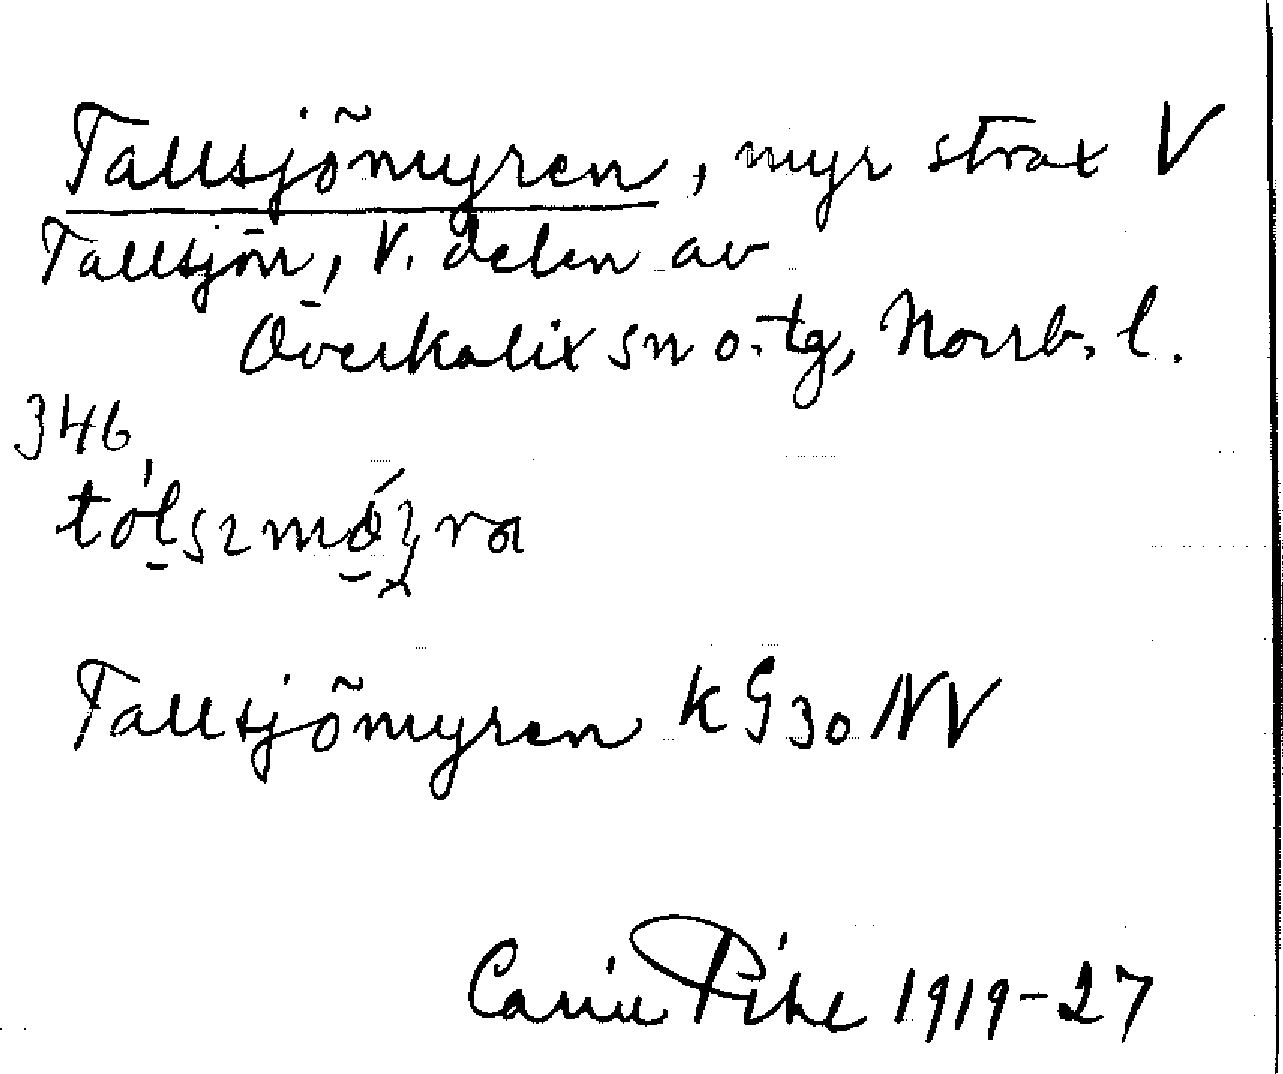 Tallsjömyren, myr strax V
Tallsjön, V. delen av
Överkalix sn o. tg, Norrb. l.
346
Tallsjömyren kG30 NV
Carin Pihl 1919-27